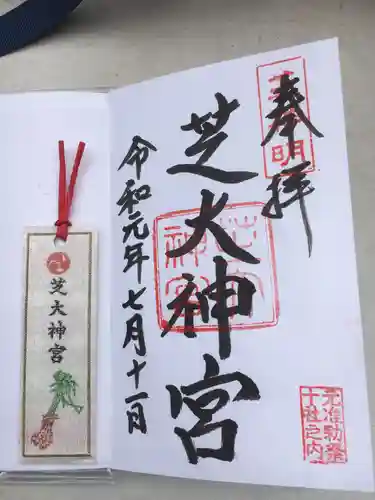 奉拝
芝大神宮
令和元年七月十一日
元准勅祭
十社之内
芝大神宮